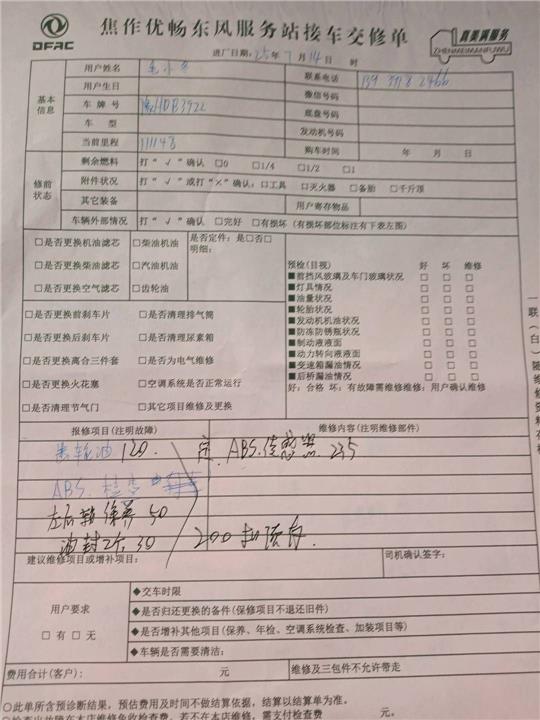 DFAC
焦作优畅东风服务站接车交修单
真美满服务
ZHENMEIMANFUWU
进厂日期: 25年7月14日 时
基本信息
用户姓名
联系电话
用户生日
微信号码
车牌号 豫HDB3922
底盘号码
车型
发动机号码
当前里程 111148
购车时间 年 月 日
修前状态
剩余燃料 打“√”确认 □0 □1/4 □1/2 □1
附件状况 打“√”或打“×”确认:□工具 □灭火器 □备胎 □千斤顶
其它装备
用户寄存物品
车辆外部情况 打“√”确认 □完好 □有损坏(有损坏部位标注有下表左图)
□是否更换机油滤芯 □柴油机油 是否定件:是□否□
明细:
□是否更换柴油滤芯 □汽油机油
□是否更换空气滤芯 □齿轮油
预检(目视) 好 坏 维修
■前挡风玻璃及车门玻璃状况 □ □ □
■灯具情况 □ □ □
■油量状况 □ □ □
■轮胎状况 □ □ □
■发动机机油状况 □ □ □
■防冻防锈瓶状况 □ □ □
■制动液液面 □ □ □
■动力转向液液面 □ □ □
■变速箱漏油情况 □ □ □
■后桥漏油情况 □ □ □
好:合格 坏:有故障需维修维修:用户确认维修
□是否更换前刹车片 □是否清理排气筒
□是否更换后刹车片 □是否清理尿素箱
□是否更换离合三件套 □是否为电气维修
□是否更换火花塞 □空调系统是否正常运行
□是否清理节气门 □其它项目维修及更换
报修项目(注明故障) 维修内容(注明维修部件)
齿轮油 120. 定.ABS.传感器 235
ABS.检查
左后轴保养 50
油封2个 30 200
建议维修项目或增补项目:
司机确认签字:
用户要求
□有 □无
◆交车时限
◆是否归还更换的备件(保修项目不退还旧件)
◆是否增补其他项目(保养、年检、空调系统检查、加装项目等)
◆车辆是否需要清洁:
费用合计(客户): 元 维修及三包件不允许带走
○此单所含预诊断结果,预估费用及时间不做结算依据,结算以结算单为准。